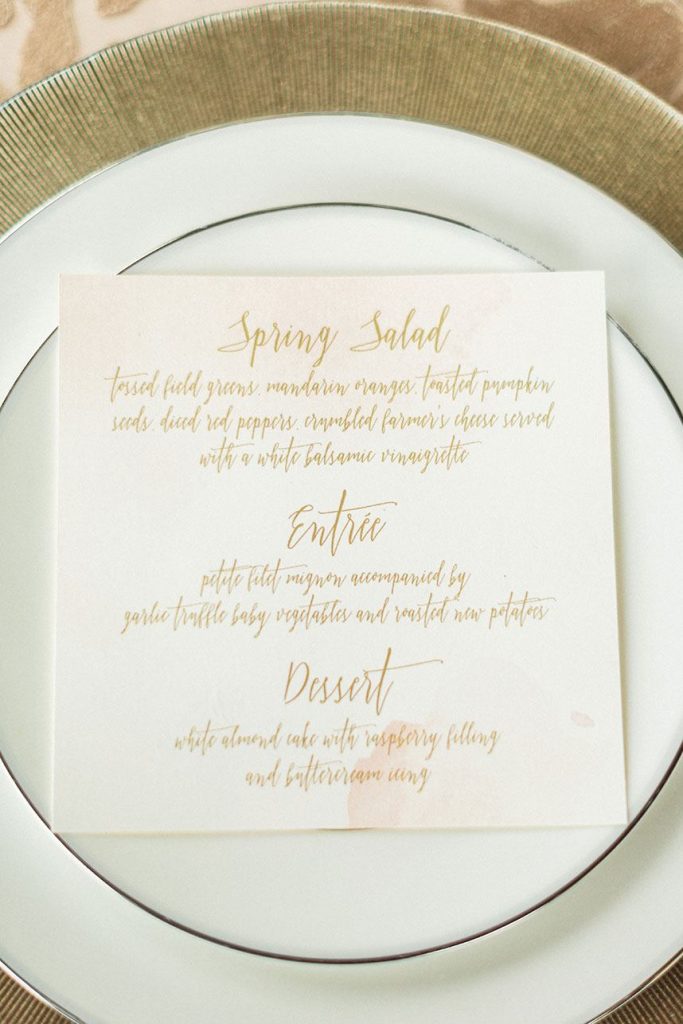 Spring Salad
tossed field greens, mandarin oranges, toasted pumpkin
seeds, diced red peppers, crumbled farmer's cheese served
with a white balsamic vinaigrette
Entrée
petite filet mignon accompanied by
garlic truffle baby vegetables and roasted new potatoes
Dessert
white almond cake with raspberry filling
and buttercream icing